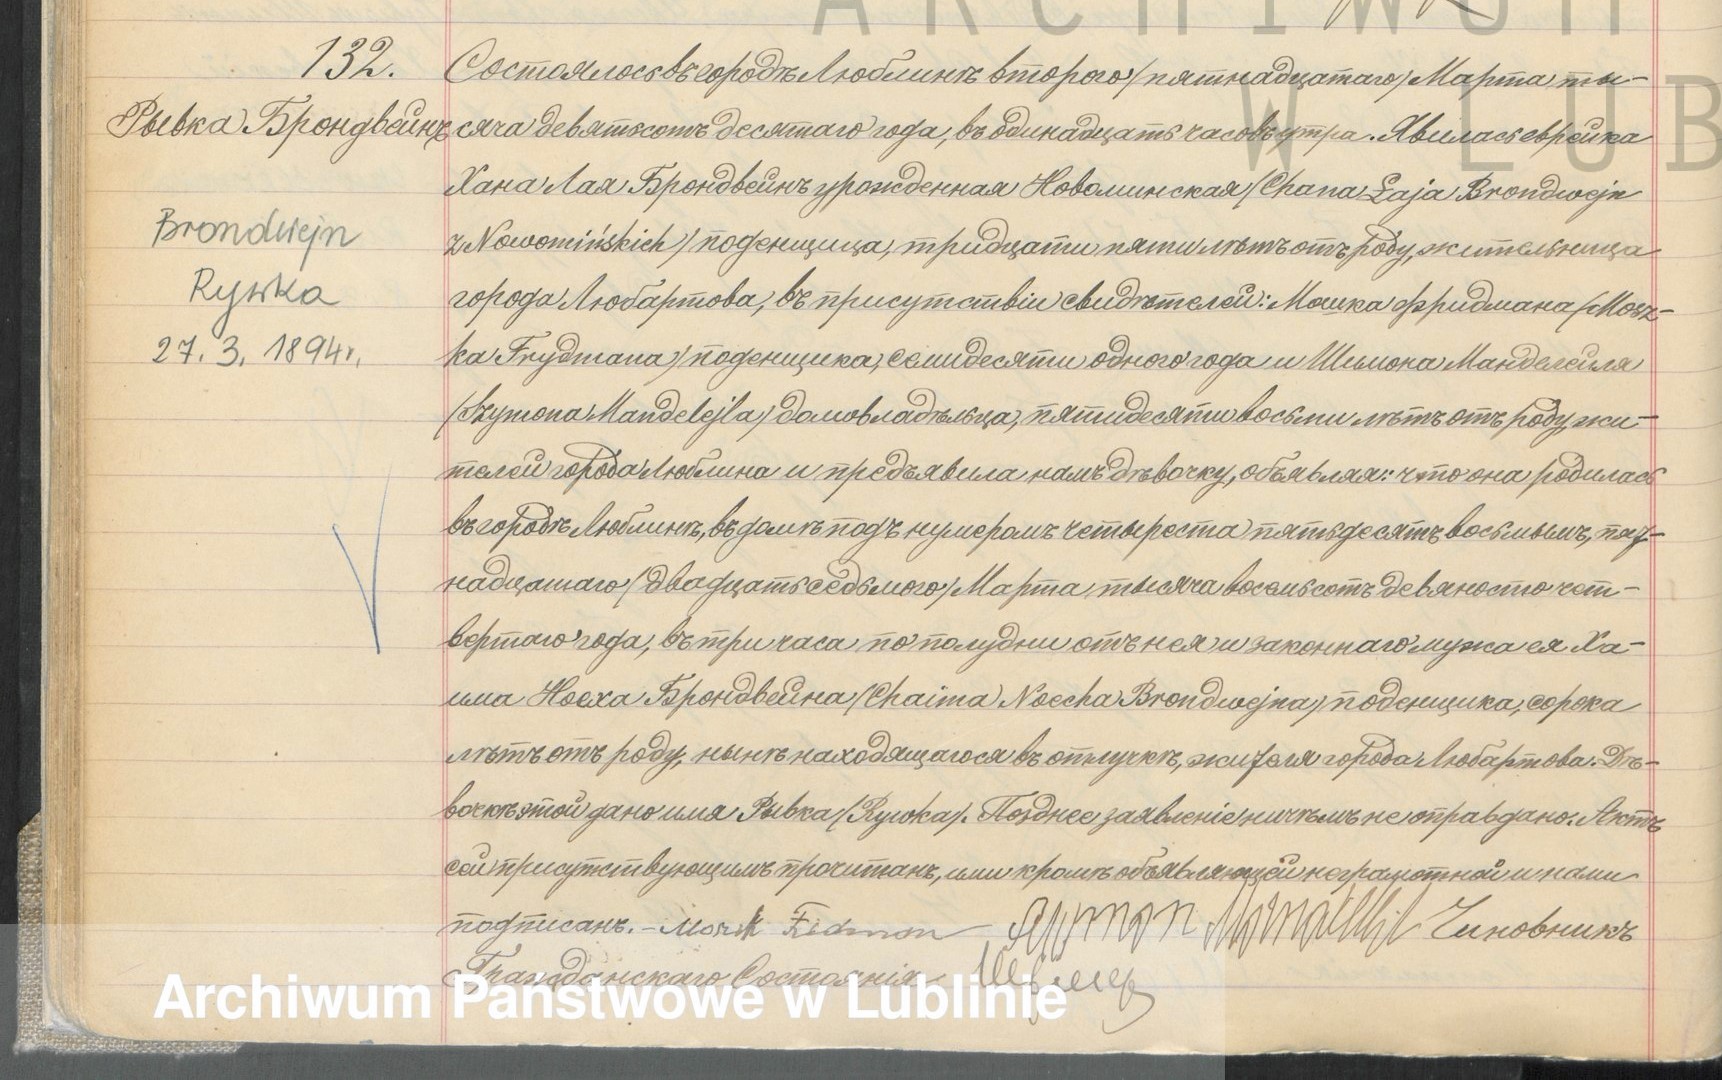 ARCHIWUM
W LUB
132.
Рывка Брондвейнъ
Brondwejn
Rywka
27. 3. 1894r.
Состоялось въ городѣ Люблинѣ второго (пятнадцатаго) Марта ты-
сяча девятьсотъ десятаго года, въ одинадцать часовъ утра. Явилась еврейка
Хана Лая Брондвейнъ урожденная Новоминская (Chana Łaja Brondwejn
z Nowomińskich) поденщица, тридцати пяти лѣтъ отъ роду, жительница
города Любартова, въ присутствіи свидѣтелей: Мошка Фридмана (Mosz-
ka Frydmana) поденщика, семидесяти одного года и Шимона Манделейля
(Szymona Mandelejla) домовладѣльца, пятидесяти восьми лѣтъ отъ роду, жи-
телей города Люблина и предъявила намъ дѣвочку, объявляя: что она родилась
въ городѣ Люблинѣ, въ домѣ подъ нумеромъ четыреста пятьдесятъ восьмымъ, пят-
надцатаго (двадцать седьмого) Марта тысяча восемьсотъ девяносто чет-
вертаго года, въ три часа по полудни отъ нея и законнаго мужа ея Ха-
има Ноеха Брондвейна (Chaima Noecha Brondwejna) поденщика, сорока
лѣтъ отъ роду, нынѣ находящагося въ отлучкѣ, жителя города Любартова. Дѣ-
вочкѣ этой дано имя Рывка (Rywka). Позднее заявленіе ничѣмъ не оправдано. Актъ
сей присутствующимъ прочитанъ, ими кромѣ объявляющей неграмотной и нами
подписанъ. - Чиновникъ
Гражданскаго Состоянія
Archiwum Państwowe w Lublinie